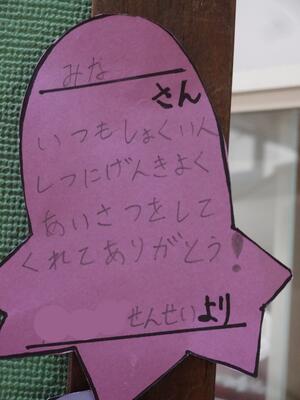 みな
さん
いつもしょくいん
しつにげんきよく
あいさつをして
くれてありがとう!
せんせいより